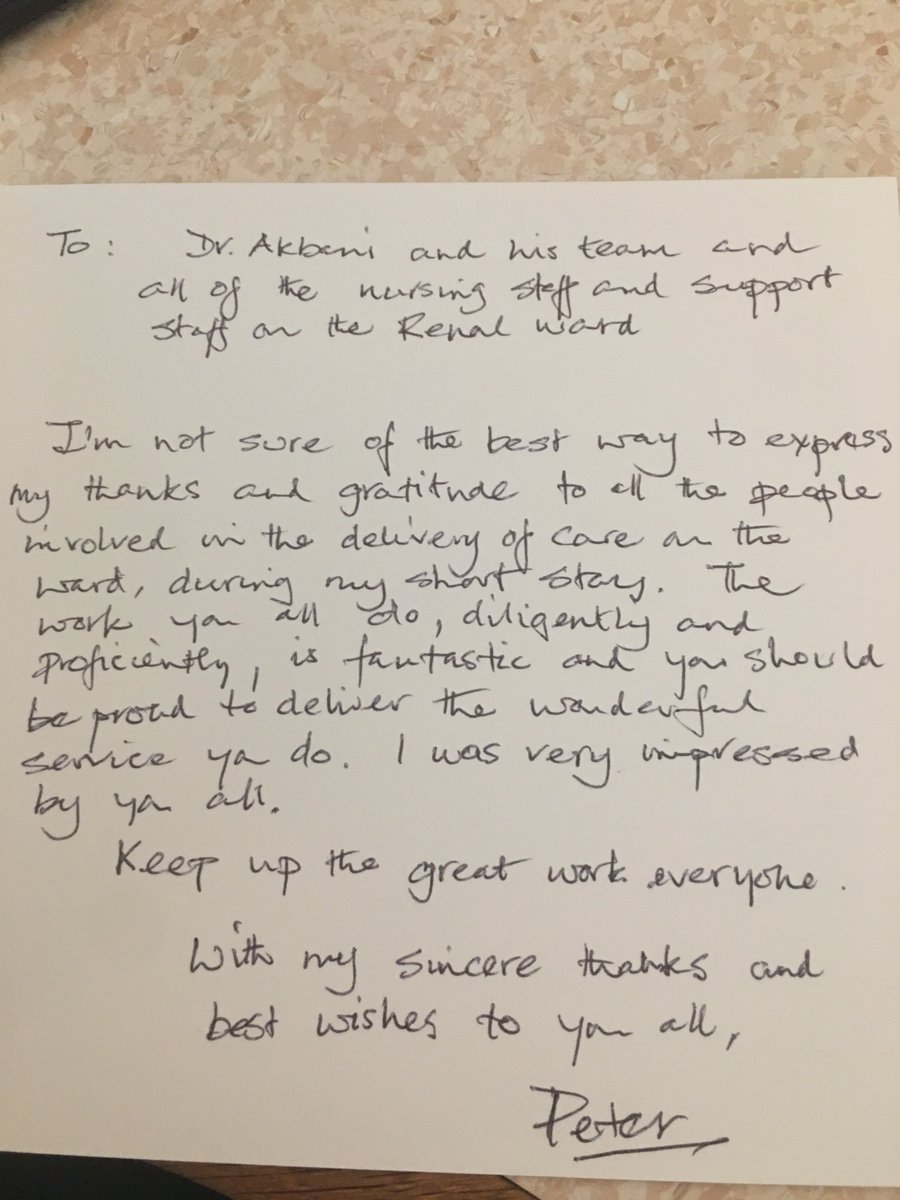 To: Dr. Akbani and his team and
all of the nursing staff and support
staff on the Renal ward
I'm not sure of the best way to express
my thanks and gratitude to all the people
involved in the delivery of care on the
ward, during my short stay. The
work you all do, diligently and
proficiently, is fantastic and you should
be proud to deliver the wonderful
service you do. I was very impressed
by you all.
Keep up the great work everyone.
With my sincere thanks and
best wishes to you all,
Peter